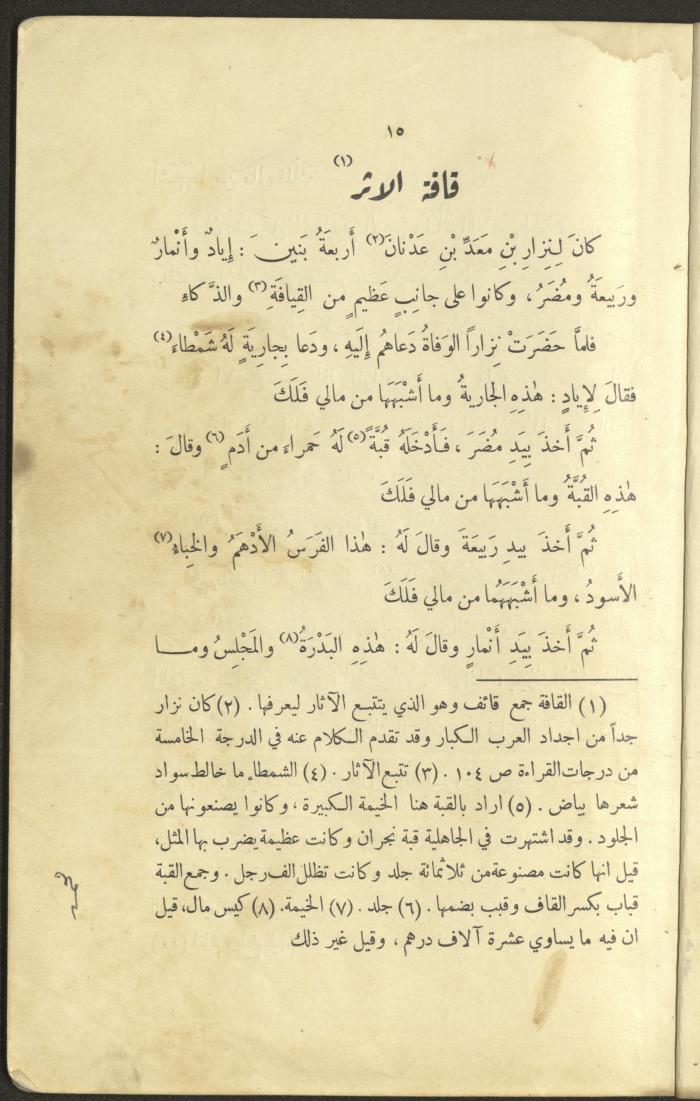 ١٥
قافة الاثر (١)
كانَ لِنِزارِ بْنِ مَعَدِّ بْنِ عَدْنانَ(٢) أَربعَةُ بَنينَ : إِيادٌ وأَنْمارٌ
ورَبيعَةُ ومُضَرُ ، وكانوا على جانِبٍ عَظيمٍ من القِيافَةِ(٣) والذَّكاءِ
فلمَّا حَضَرَتْ نِزاراً الوَفاةُ دَعاهُم إِلَيهِ ، ودَعا بِجارِيَةٍ لَهُ شَمْطاءَ(٤)
فقالَ لِإِيادٍ : هٰذِهِ الجاريةُ وما أَشْبَهَها من مالي فَلَكَ
ثُمَّ أَخذَ بِيَدِ مُضَرَ ، فَأَدْخَلَهُ قُبَّةً(٥) لَهُ حَمراءَ من أَدَمٍ(٦) وقالَ :
هٰذِهِ القُبَّةُ وما أَشْبَهَها من مالي فَلَكَ
ثُمَّ أَخذَ بيدِ رَبيعَةَ وقالَ لَهُ : هٰذا الفَرَسُ الأَدْهَمُ والخِباءُ(٧)
الأَسودُ ، وما أَشْبَهَهُما من مالي فَلَكَ
ثُمَّ أَخذَ بِيَدِ أَنْمارٍ وقالَ لَهُ : هٰذِهِ البَدْرَةُ(٨) والمَجْلِسُ وما
(١) القافة جمع قائف وهو الذي يتتبع الآثار ليعرفها . (٢) كان نزار
جداً من اجداد العرب الكبار وقد تقدم الكلام عنه في الدرجة الخامسة
من درجات القراءة ص ١٠٤ . (٣) تتبع الآثار . (٤) الشمطاء ما خالط سواد
شعرها بياض . (٥) اراد بالقبة هنا الخيمة الكبيرة ، وكانوا يصنعونها من
الجلود . وقد اشتهرت في الجاهلية قبة نجران وكانت عظيمة يضرب بها المثل ،
قيل انها كانت مصنوعة من ثلاثمائة جلد وكانت تظلل الف رجل . وجمع القبة
قباب بكسر القاف وقبب بضمها . (٦) جلد . (٧) الخيمة . (٨) كيس مال ، قيل
ان فيه ما يساوي عشرة آلاف درهم ، وقيل غير ذلك